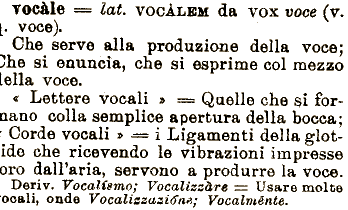 vocàle = lat. VOCÀLEM da VOX voce (v.
q. voce).
Che serve alla produzione della voce;
Che si enuncia, che si esprime col mezzo
della voce.
« Lettere vocali » = Quelle che si for-
mano colla semplice apertura della bocca;
« Corde vocali » = i Ligamenti della glot-
tide che ricevendo le vibrazioni impresse
loro dall'aria, servono a produrre la voce.
Deriv. Vocalísmo; Vocalizzàre = Usare molte
vocali, onde Vocalizzazióne; Vocalménte.